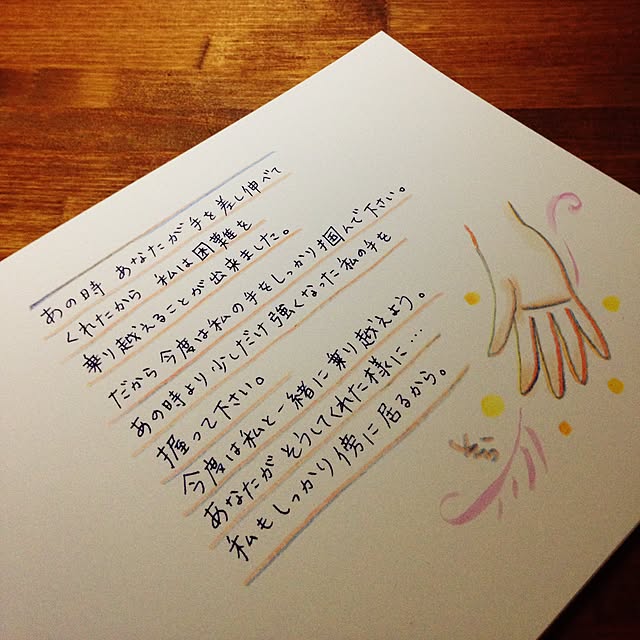 あの時 あなたが手を差し伸べて
くれたから 私は困難を
乗り越えることが出来ました。
だから今度は私の手をしっかり掴んで下さい。
あの時より少しだけ強くなった私の手を
握って下さい。
今度は私と一緒に乗り越えよう。
あなたが そうしてくれた様に….
私もしっかり傍に居るから。